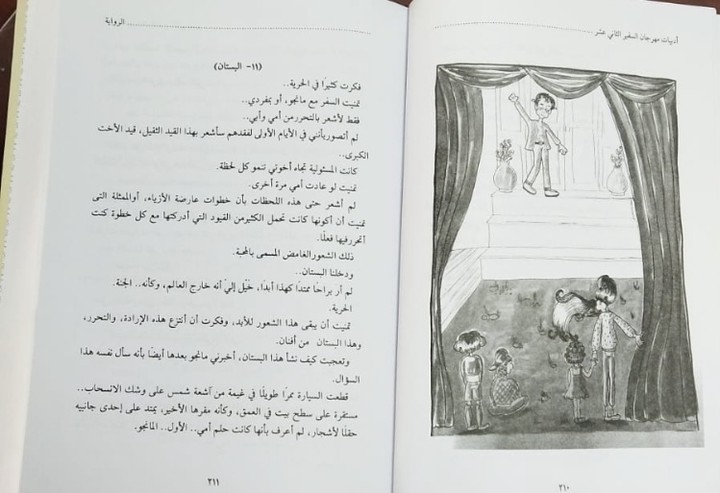 أدبيات مهرجان السفير الثاني عشر
٢١٠
الرواية
(١١- البستان)
فكرت كثيرًا في الحرية..
تمنيت السفر مع مانجو، أو بمفردي..
فقط لأشعر بالتحررمن أمي وأبي..
لم أتصوربأنني في الأيام الأولى لفقدهم سأشعر بهذا القيد الثقيل، قيد الأخت
الكبرى..
كانت المسئولية تجاه أخوتي تنمو كل لحظة.
تمنيت لو عادت أمي مرة أخرى.
لم أشعر حتى هذه اللحظات بأن خطوات عارضة الأزياء، أوالممثلة التى
تمنيت أن أكونها كانت تحمل الكثيرمن القيود التي أدركتها مع كل خطوة كنت
أتحررفيها فعلًا.
ذلك الشعورالغامض المسمى بالمحبة.
ودخلنا البستان..
لم أر براحًا ممتدًا كهذا أبدًا، خُيّل إليّ أنه خارج العالم، وكأنه.. الجنة.
الحرية.
تمنيت أن يبقى هذا الشعور للأبد، وفكرت أن أنتزع هذه الإرادة، والتحرر،
وهذا البستان من أفنان.
وتعجبت كيف نشأ هذا البستان، أخبرني مانجو بعدها أيضًا بأنه سأل نفسه هذا
السؤال.
قطعت السيارة ممرًا طويلًا في غيمة من أشعة شمس على وشك الانسحاب..
مستقرة على سطح بيت في العمق، وكأنه مقرها الأخير، يمتد على إحدى جانبيه
حقلًا لأشجار، لم أعرف بأنها كانت حلم أمي.. الأول.. المانجو.
٢١١